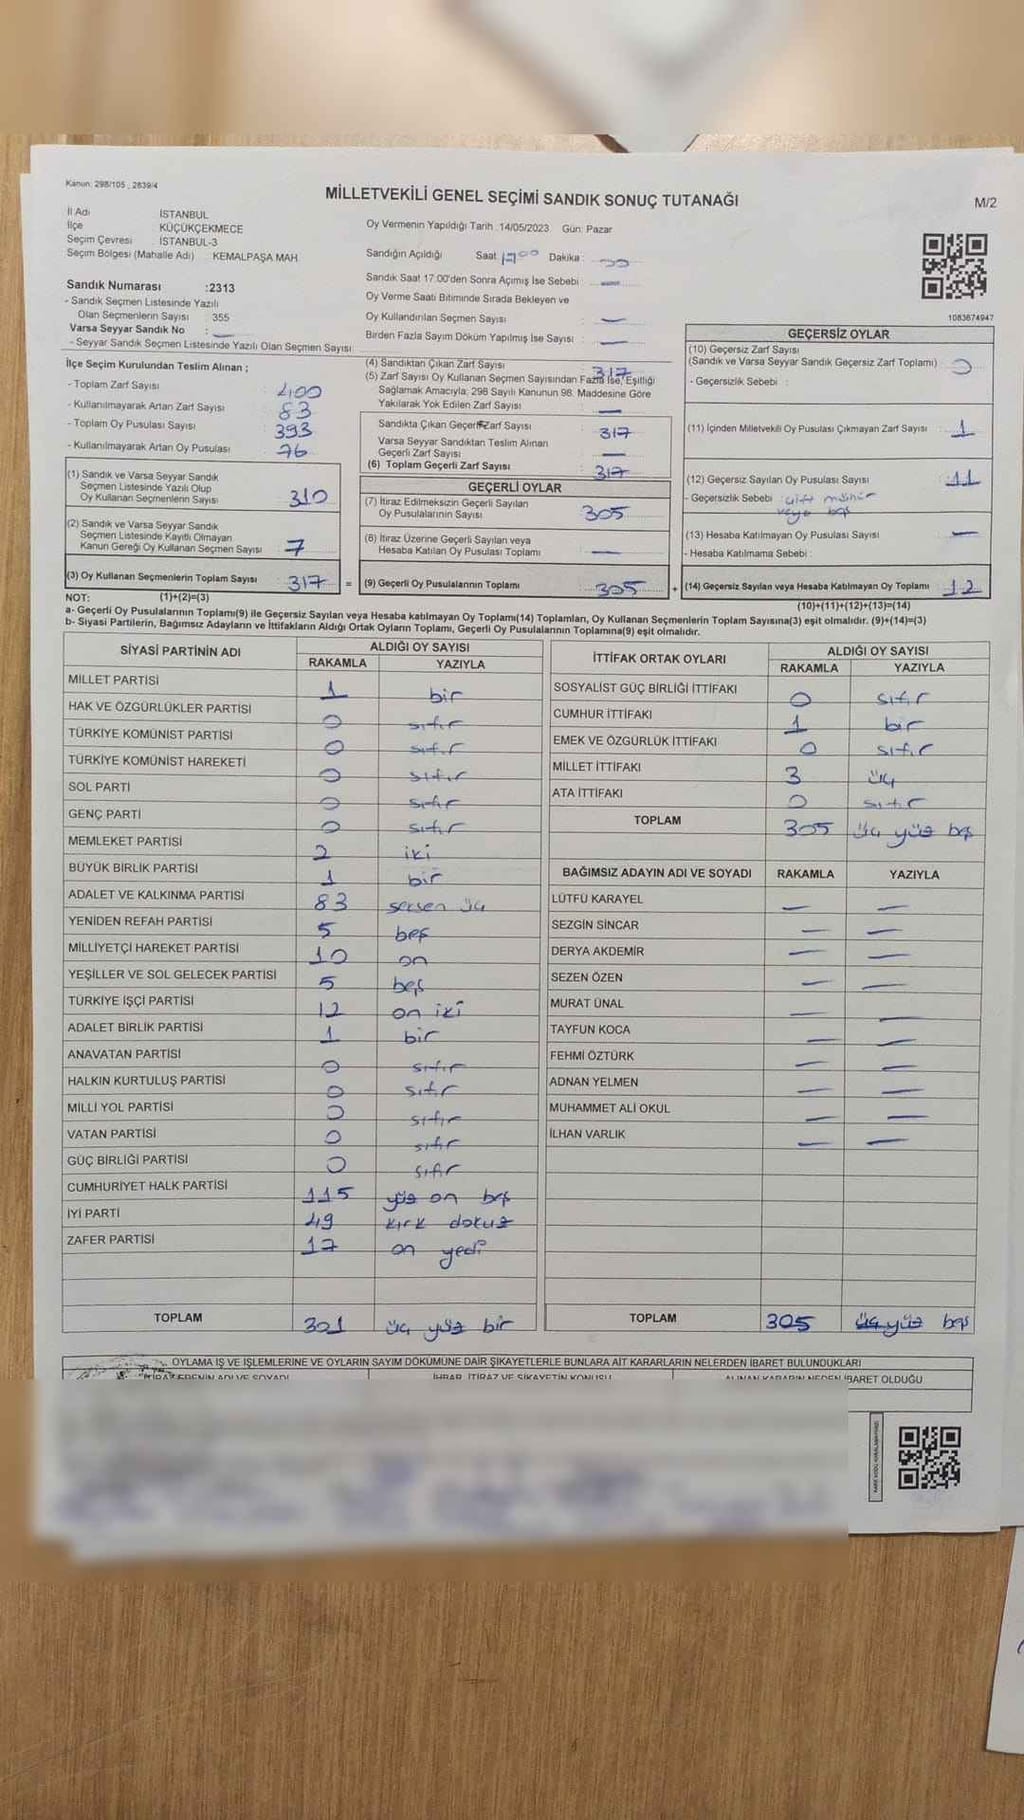 Kanun: 298/105 , 2839/4
MİLLETVEKİLİ GENEL SEÇİMİ SANDIK SONUÇ TUTANAĞI
M/2
İl Adı İSTANBUL
İlçe KÜÇÜKÇEKMECE
Seçim Çevresi İSTANBUL-3
Seçim Bölgesi (Mahalle Adı) KEMALPAŞA MAH
Sandık Numarası :2313
- Sandık Seçmen Listesinde Yazılı
Olan Seçmenlerin Sayısı 355
Varsa Seyyar Sandık No : —
- Seyyar Sandık Seçmen Listesinde Yazılı Olan Seçmen Sayısı
Oy Vermenin Yapıldığı Tarih :14/05/2023 Gün: Pazar
Sandığın Açıldığı Saat 17:00 Dakika : 00
Sandık Saat 17:00'den Sonra Açımış İse Sebebi : —
Oy Verme Saati Bitiminde Sırada Bekleyen ve
Oy Kullandırılan Seçmen Sayısı : —
Birden Fazla Sayım Döküm Yapılmış İse Sayısı : —
1083674947
İlçe Seçim Kurulundan Teslim Alınan ;
- Toplam Zarf Sayısı : 400
- Kullanılmayarak Artan Zarf Sayısı : 83
- Toplam Oy Pusulası Sayısı : 393
- Kullanılmayarak Artan Oy Pusulası : 76
(1) Sandık ve Varsa Seyyar Sandık
Seçmen Listesinde Yazılı Olup
Oy Kullanan Seçmenlerin Sayısı : 310
(2) Sandık ve Varsa Seyyar Sandık
Seçmen Listesinde Kayıtlı Olmayan
Kanun Gereği Oy Kullanan Seçmen Sayısı : 7
(3) Oy Kullanan Seçmenlerin Toplam Sayısı : 317 =
(4) Sandıktan Çıkan Zarf Sayısı : 317
(5) Zarf Sayısı Oy Kullanan Seçmen Sayısından Fazla İse, Eşitliği
Sağlamak Amacıyla, 298 Sayılı Kanunun 98. Maddesine Göre
Yakılarak Yok Edilen Zarf Sayısı : —
Sandıkta Çıkan Geçerli Zarf Sayısı : 317
Varsa Seyyar Sandıktan Teslim Alınan
Geçerli Zarf Sayısı : —
(6) Toplam Geçerli Zarf Sayısı : 317
GEÇERLİ OYLAR
(7) İtiraz Edilmeksizin Geçerli Sayılan
Oy Pusulalarının Sayısı : 305
(8) İtiraz Üzerine Geçerli Sayılan veya
Hesaba Katılan Oy Pusulası Toplamı : —
(9) Geçerli Oy Pusulalarının Toplamı : 305 +
GEÇERSİZ OYLAR
(10) Geçersiz Zarf Sayısı
(Sandık ve Varsa Seyyar Sandık Geçersiz Zarf Toplamı) : 0
- Geçersizlik Sebebi :
(11) İçinden Milletvekili Oy Pusulası Çıkmayan Zarf Sayısı : 1
(12) Geçersiz Sayılan Oy Pusulası Sayısı : 11
- Geçersizlik Sebebi : çift mühür
veya boş
(13) Hesaba Katılmayan Oy Pusulası Sayısı : —
- Hesaba Katılmama Sebebi :
(14) Geçersiz Sayılan veya Hesaba Katılmayan Oy Toplamı : 12
NOT: (1)+(2)=(3)
(10)+(11)+(12)+(13)=(14)
a- Geçerli Oy Pusulalarının Toplamı(9) ile Geçersiz Sayılan veya Hesaba katılmayan Oy Toplamı(14) Toplamları, Oy Kullanan Seçmenlerin Toplam Sayısına(3) eşit olmalıdır. (9)+(14)=(3)
b- Siyasi Partilerin, Bağımsız Adayların ve İttifakların Aldığı Ortak Oyların Toplamı, Geçerli Oy Pusulalarının Toplamına(9) eşit olmalıdır.
SİYASİ PARTİNİN ADI ALDIĞI OY SAYISI
RAKAMLA YAZIYLA
MİLLET PARTİSİ 1 bir
HAK VE ÖZGÜRLÜKLER PARTİSİ 0 sıfır
TÜRKİYE KOMÜNİST PARTİSİ 0 sıfır
TÜRKİYE KOMÜNİST HAREKETİ 0 sıfır
SOL PARTİ 0 sıfır
GENÇ PARTİ 0 sıfır
MEMLEKET PARTİSİ 2 iki
BÜYÜK BİRLİK PARTİSİ 1 bir
ADALET VE KALKINMA PARTİSİ 83 seksen üç
YENİDEN REFAH PARTİSİ 5 beş
MİLLİYETÇİ HAREKET PARTİSİ 10 on
YEŞİLLER VE SOL GELECEK PARTİSİ 5 beş
TÜRKİYE İŞÇİ PARTİSİ 12 on iki
ADALET BİRLİK PARTİSİ 1 bir
ANAVATAN PARTİSİ 0 sıfır
HALKIN KURTULUŞ PARTİSİ 0 sıfır
MİLLİ YOL PARTİSİ 0 sıfır
VATAN PARTİSİ 0 sıfır
GÜÇ BİRLİĞİ PARTİSİ 0 sıfır
CUMHURİYET HALK PARTİSİ 115 yüz on beş
İYİ PARTİ 49 kırk dokuz
ZAFER PARTİSİ 17 on yedi
TOPLAM 301 üç yüz bir
İTTİFAK ORTAK OYLARI ALDIĞI OY SAYISI
RAKAMLA YAZIYLA
SOSYALİST GÜÇ BİRLİĞİ İTTİFAKI 0 sıfır
CUMHUR İTTİFAKI 1 bir
EMEK VE ÖZGÜRLÜK İTTİFAKI 0 sıfır
MİLLET İTTİFAKI 3 üç
ATA İTTİFAKI 0 sıfır
TOPLAM 305 üç yüz beş
BAĞIMSIZ ADAYIN ADI VE SOYADI RAKAMLA YAZIYLA
LÜTFÜ KARAYEL — —
SEZGİN SİNCAR — —
DERYA AKDEMİR — —
SEZEN ÖZEN — —
MURAT ÜNAL — —
TAYFUN KOCA — —
FEHMİ ÖZTÜRK — —
ADNAN YELMEN — —
MUHAMMET ALİ OKUL — —
İLHAN VARLIK — —
TOPLAM 305 üç yüz beş
OYLAMA İŞ VE İŞLEMLERİNE VE OYLARIN SAYIM DÖKÜMÜNE DAİR ŞİKAYETLERLE BUNLARA AİT KARARLARIN NELERDEN İBARET BULUNDUKLARI
İTİRAZ EDENİN ADI VE SOYADI İHBAR, İTİRAZ VE ŞİKAYETİN KONUSU ALINAN KARARIN NEDEN İBARET OLDUĞU